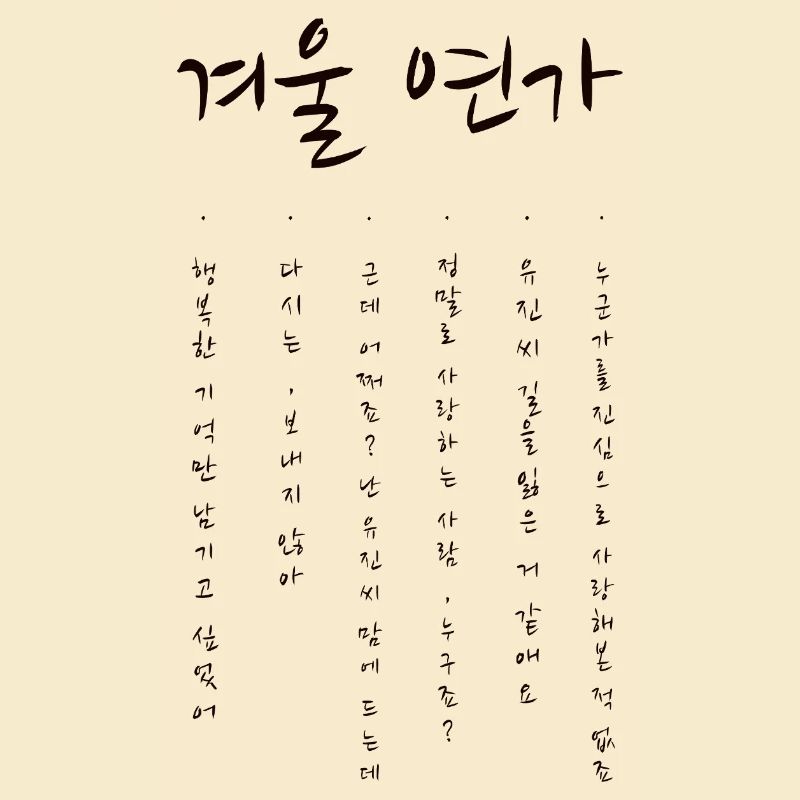 겨울 연가
누군가를 진심으로 사랑해본 적 없죠
유진씨 길을 잃은 거 같애요
정말로 사랑하는 사람, 누구죠?
근데 어쩌죠? 난 유진씨 맘에 드는데
다시는, 보내지 않아
행복한 기억만 남기고 싶었어